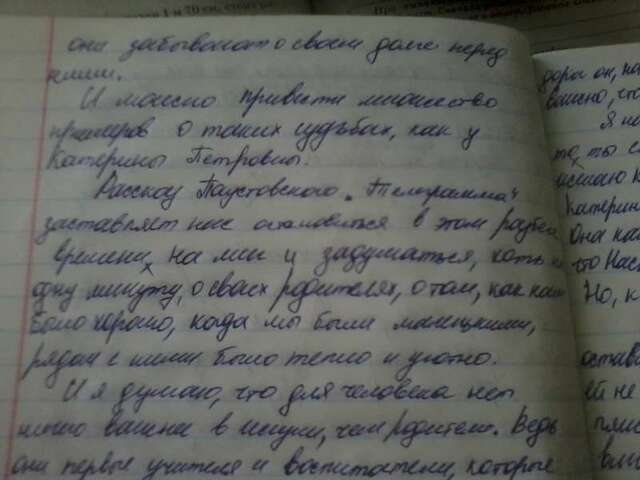 они забывают о своём долге перед
ними.
И можно привести множество
примеров о таких судьбах, как у
Катерины Петровны.
Рассказ Паустовского „Телеграмма“
заставляет нас в этом
времени на миг и задуматься, хоть на
одну минуту, о своих родителях, о том, как нам
было хорошо, когда мы были малышами,
рядом с ними было тепло и уютно.
И я думаю, что для человека нет
никого важнее в жизни, чем родители. Ведь
они первые учителя и воспитатели, которые
Я не
Катерин
Она как
Но, к